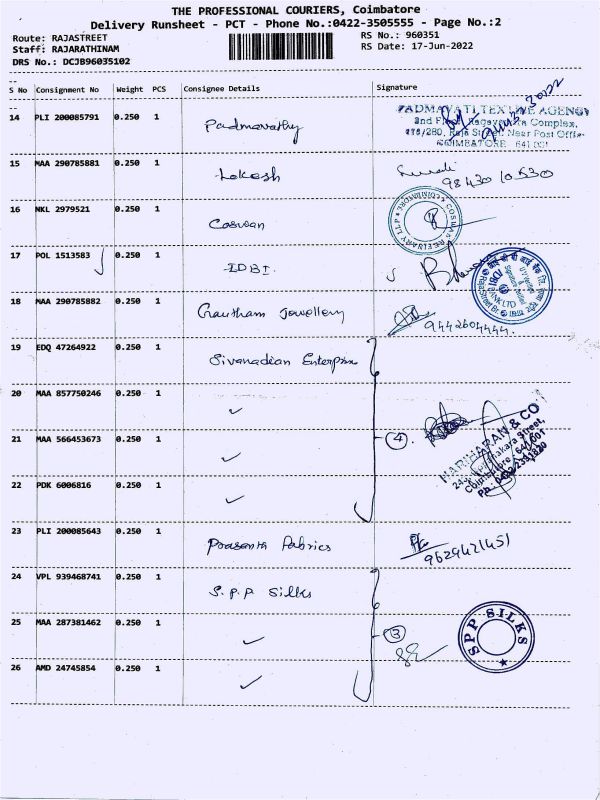 THE PROFESSIONAL COURIERS, Coimbatore
Delivery Runsheet - PCT - Phone No.:0422-3505555 - Page No.:2
Route: RAJASTREET
RS No.: 960351
Staff: RAJARATHINAM
RS Date: 17-Jun-2022
DRS No.: DCJB96035102
S No Consignment No Weight PCS Consignee Details Signature
14 PLI 200085791 0.250 1 Padmavathy
PADMAVATI TEX LINE AGENCY
2nd Complex,
Near Post Office
COIMBATORE 641 001
15 MAA 290785881 0.250 1 Lokesh
98430 10530
16 NKL 2979521 0.250 1 Coswan
17 POL 1513583 0.250 1 IDBI.
IDBI BANK LTD
18 MAA 290785882 0.250 1 Gautham Jewellery
9442604444.
19 EDQ 47264922 0.250 1 Sivanadian Enterprise
20 MAA 857750246 0.250 1 ✓
21 MAA 566453673 0.250 1 ✓ 4
HARIHARAN & CO
Coimbatore - 641 001
22 PDK 6006816 0.250 1 ✓
23 PLI 200085643 0.250 1 Prasanna Fabrics
9629421451
24 VPL 939468741 0.250 1 S.P.P Silks
25 MAA 287381462 0.250 1 ✓ 3
SPP SILKS
26 AMD 24745854 0.250 1 ✓